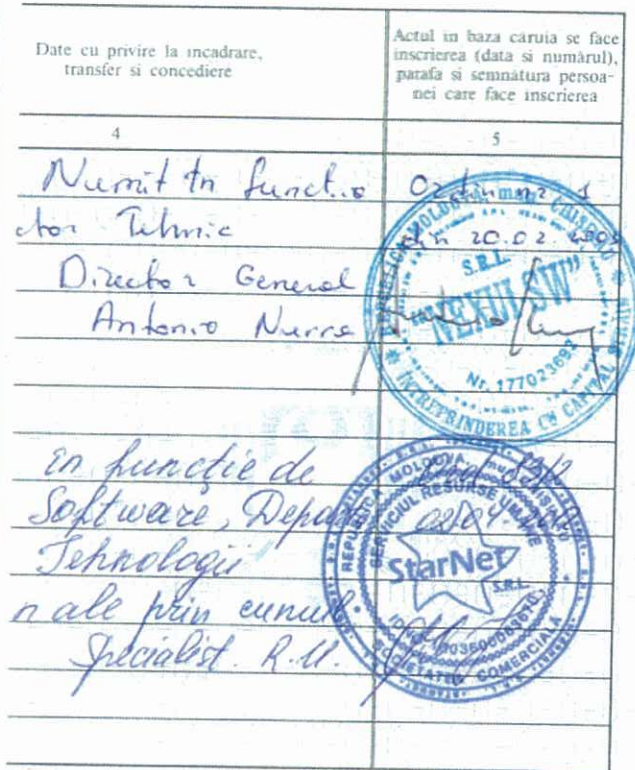 Date cu privire la incadrare,
transfer si concediere
Actul in baza căruia se face
inscrierea (data si numărul),
parafa si semnătura persoa-
nei care face inscrierea
4
5
Numit în funcție
ctor Tehnic
din 20.02.
Director General
Antonio Nurra
S.R.L.
"NEXUS SW"
Nr. 177023692
REPUBLICA MOLDOVA
INTREPRINDEREA CU CAPITAL
în funcție de
Software, Depart
Tehnologii
nale prin cumul
Specialist R.U.
REPUBLICA MOLDOVA
SERVICIUL RESURSE UMANE
StarNet
S.R.L.
SOCIETATEA COMERCIALĂ